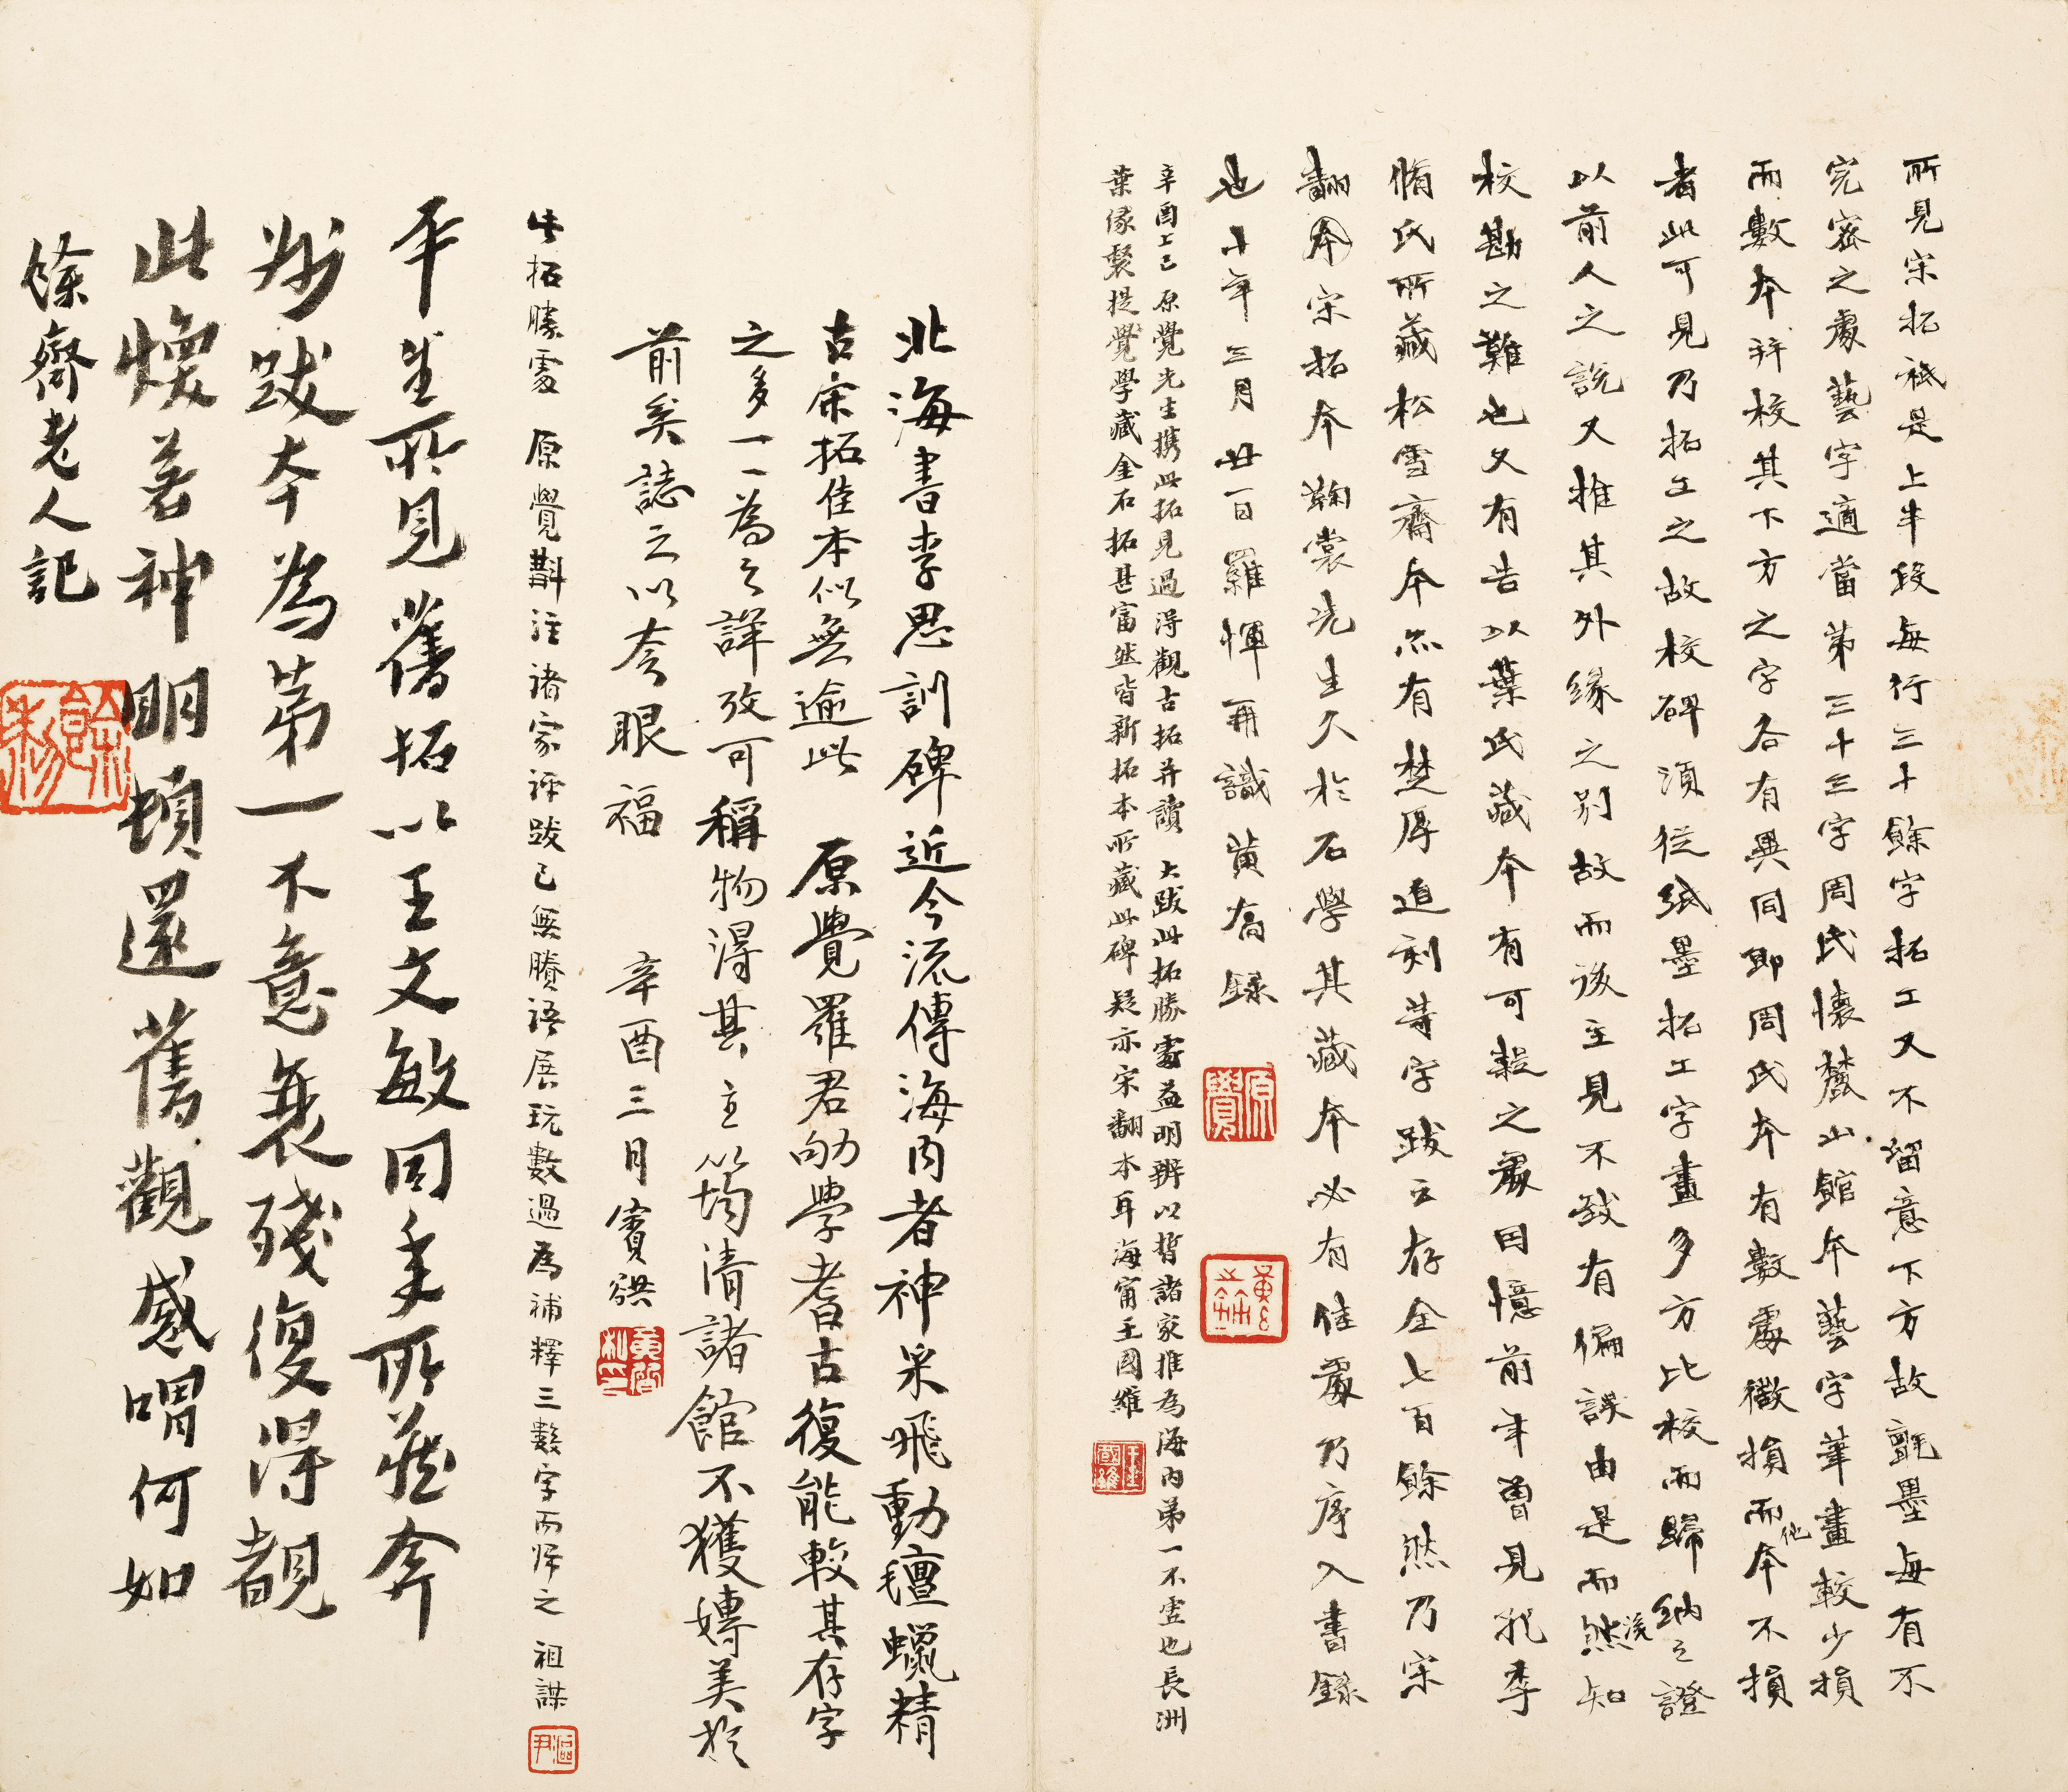 所見宋拓祇是上半段每行三十餘字拓工又不留意下方故氈墨每有不
完密之處藝字適當第三十三字周氏懷麓山館本藝字筆畫較少損
而數本并校其下方之字各有異同即周氏本有數處微損而他本不損
者此可見乃拓工之故校碑須從紙墨拓工字畫多方比校而歸納之證
以前人之說又推其外緣之別故而後主見不致有偏誤由是而然後知
校勘之難也又有告以葉氏藏本有可疑之處因憶前年曾見孔季
脩氏所藏松雪齋本亦有楚厚道刻等字跋云存全七百餘然乃宋
翻本宋拓本鞠裳先生久於石學其藏本必有佳處乃序入書錄
也十年三月廿一日羅惲再識黃裔錄
原覺
辛酉上巳原覺先生攜此拓見過得觀古拓并讀大跋此拓勝處益明辨以皆諸家推為海內第一不虛也長洲
葉緣督提學藏金石拓甚富然皆新拓本所藏此碑疑亦宋翻本耳海甯王國維
王國維
北海書李思訓碑近今流傳海內者神采飛動氊蠟精
古宋拓佳本似無逾此原覺羅君劬學耆古復能較其存字
之多一一為之詳攷可稱物得其主筠清諸館不獲專美於
前矣誌之以夸眼福辛酉三月賓虹
黃質私印
此拓勝處原覺斠注諸家評跋已無賸語展玩數過為補釋三數字而歸之祖謀
漚尹
平生所見舊拓以王文敏同年所藏弆
州跋本為第一不意衰殘復得覩
此煥若神明頓還舊觀感喟何如
餘齋老人記